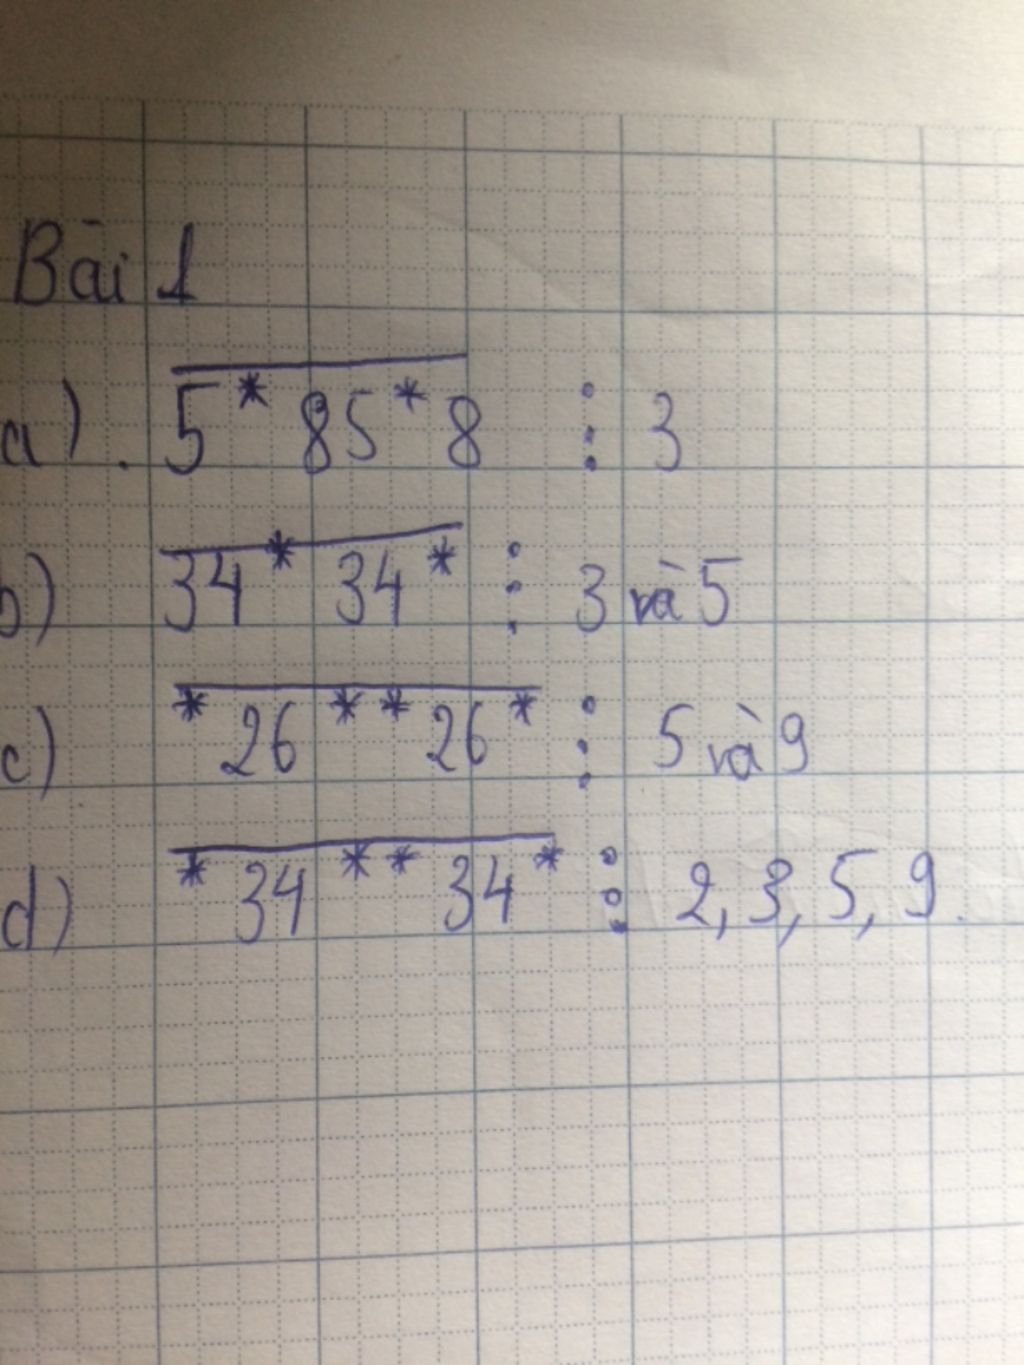 Bài 1
a). 5*85*8 ⋮ 3
b) 34*34* ⋮ 3 và 5
c) *26**26* ⋮ 5 và 9
d) *34**34* ⋮ 2, 3, 5, 9.